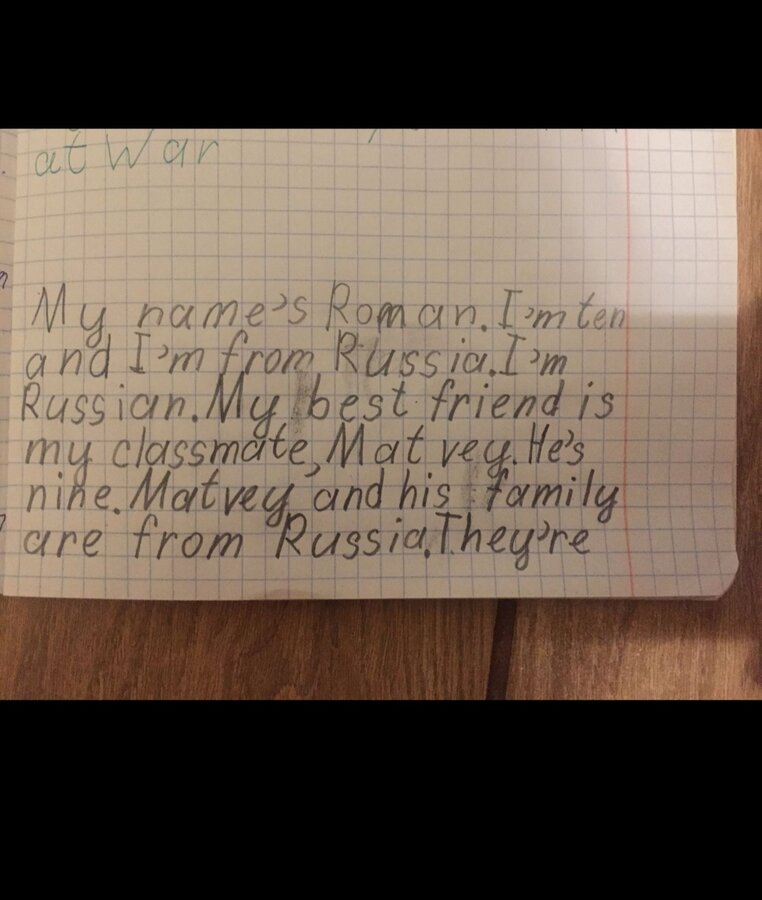 at War
My name's Roman. I'm ten
and I'm from Russia. I'm
Russian. My best friend is
my classmate, Matvey. He's
nine. Matvey and his family
are from Russia. They're